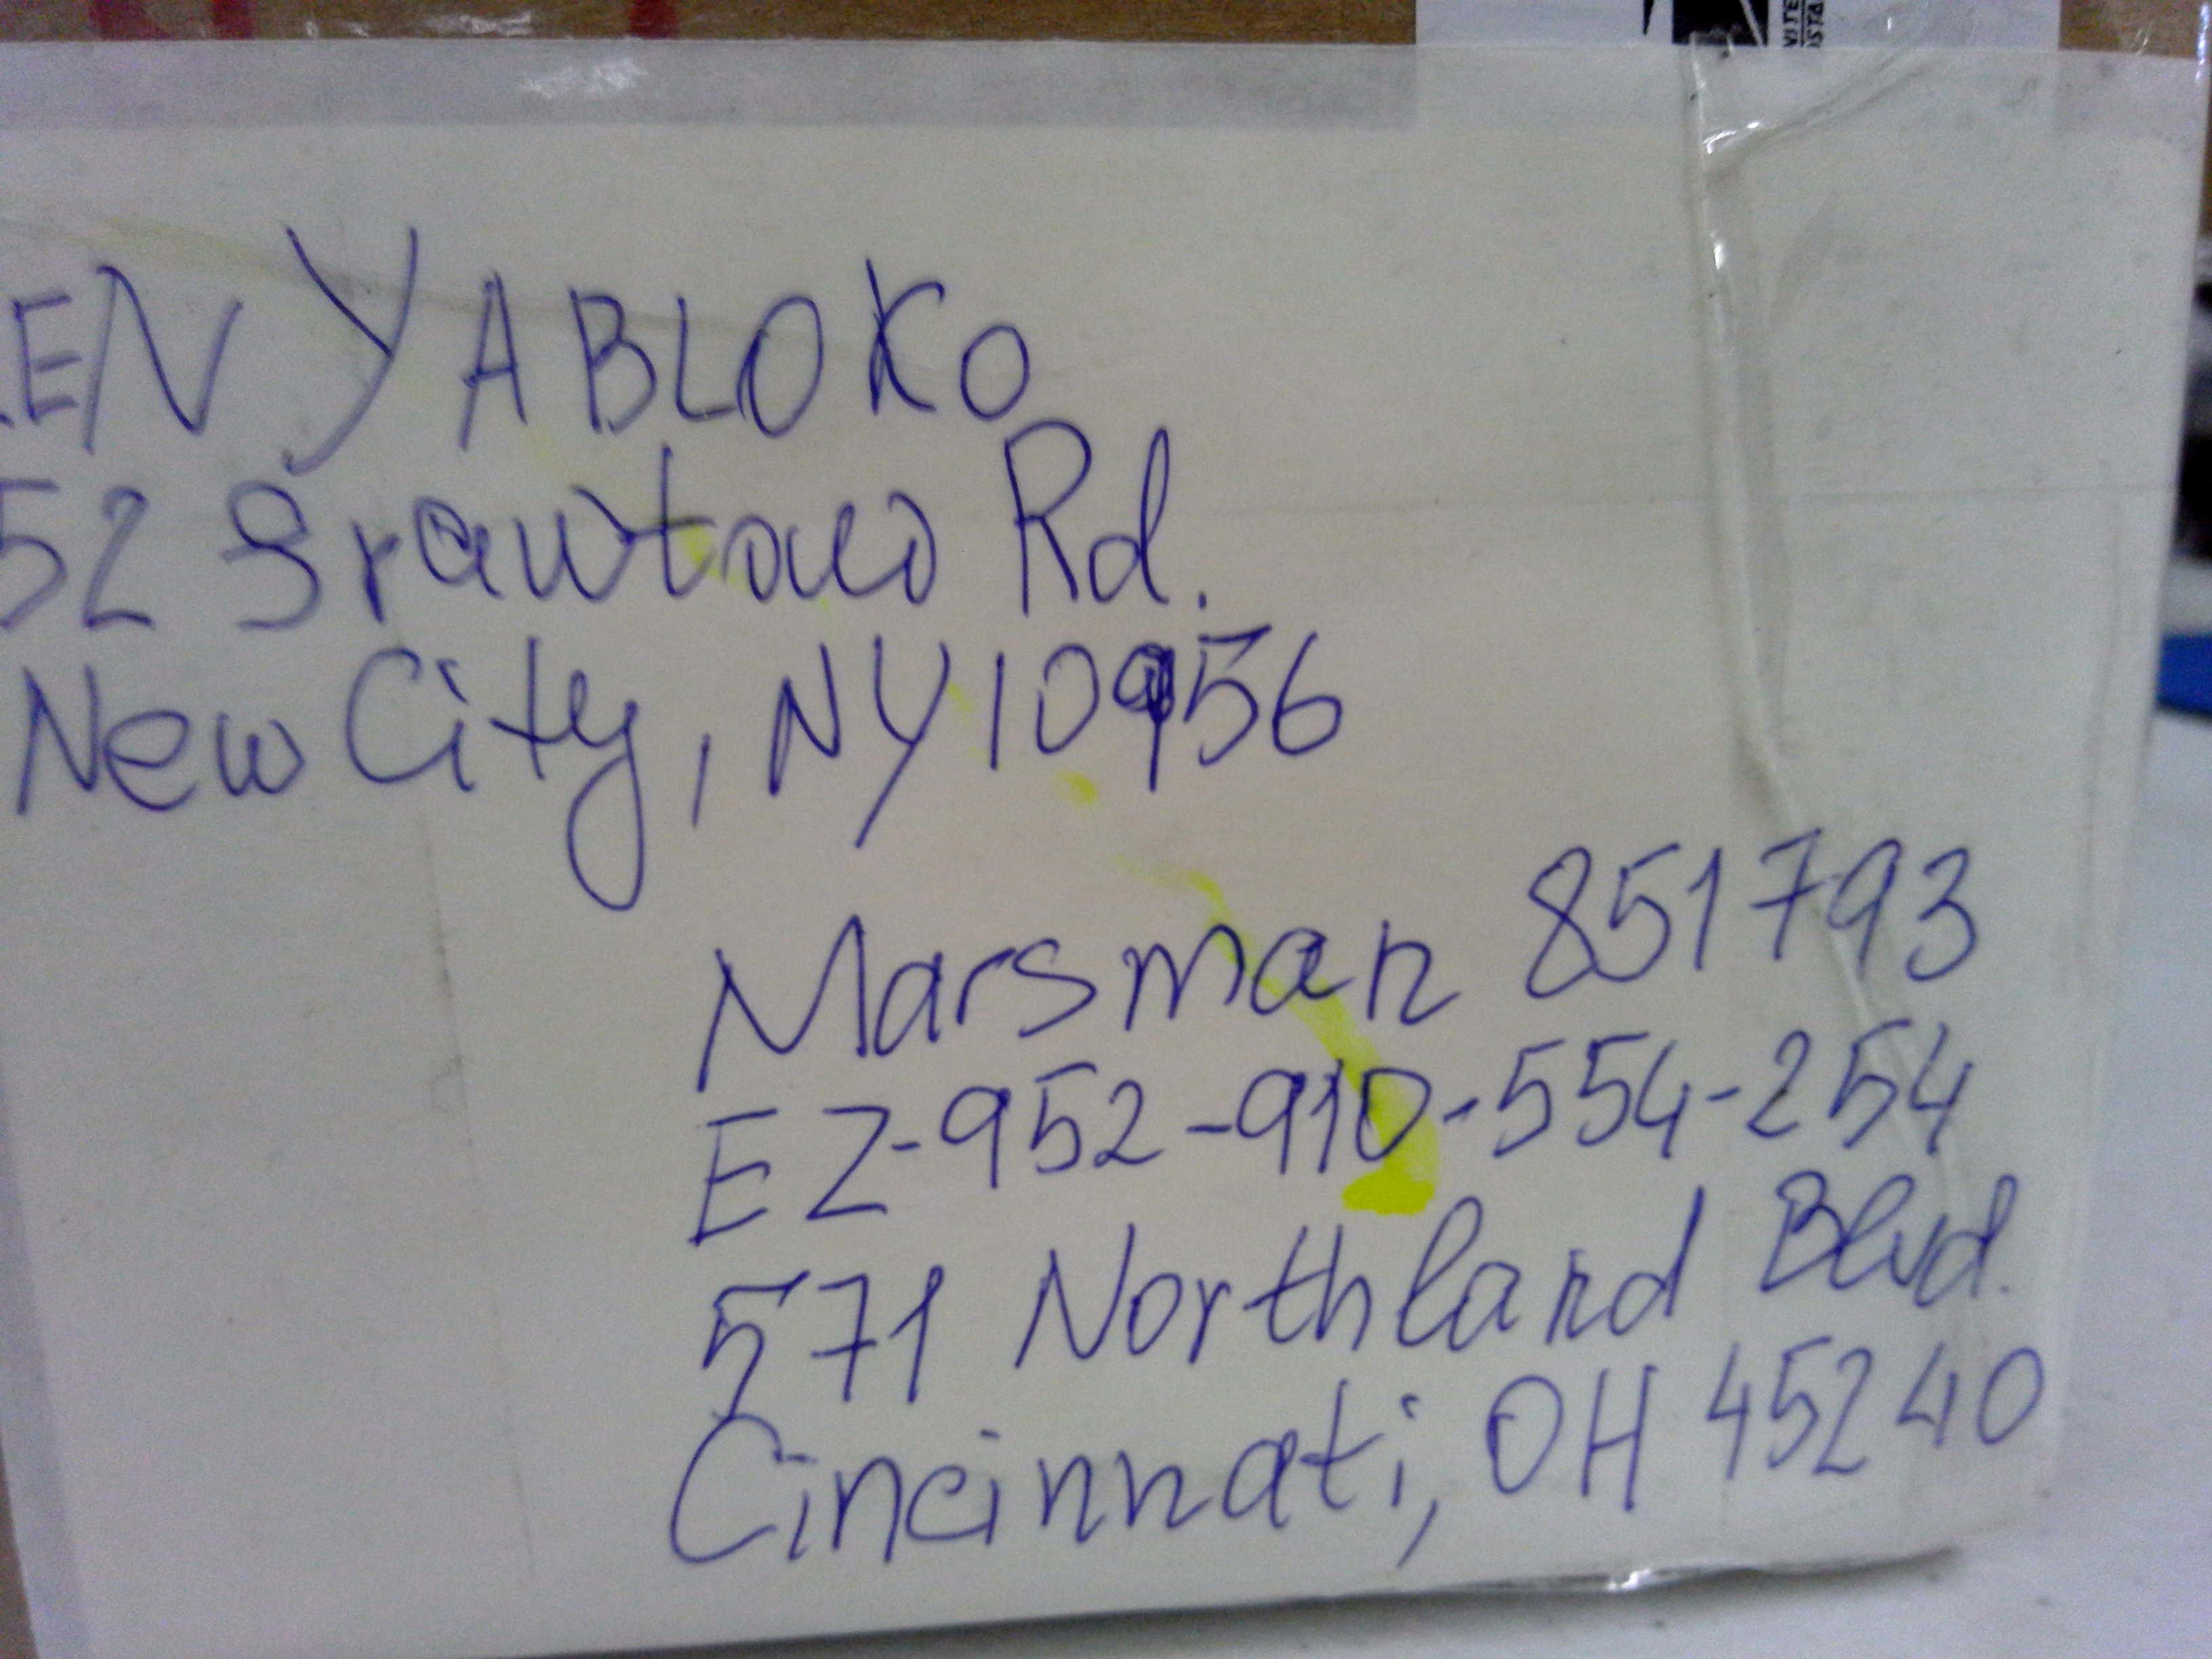 .EN YABLOKO
52 Rd.
New City, NY 10956
Marsman 851793
EZ-952-910-554-254
571 Northland Blvd.
Cincinnati, OH 45240